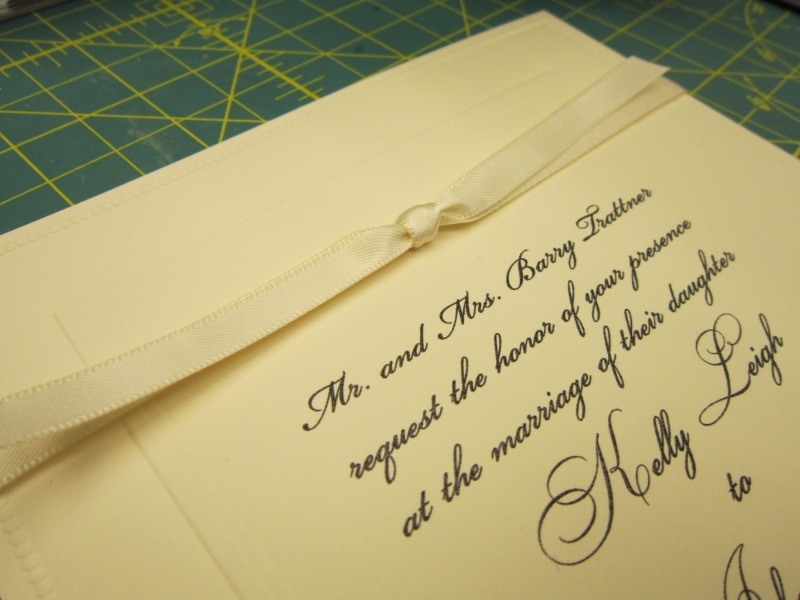 Mr. and Mrs. Barry Trattner
request the honor of your presence
at the marriage of their daughter
Kelly Leigh
to